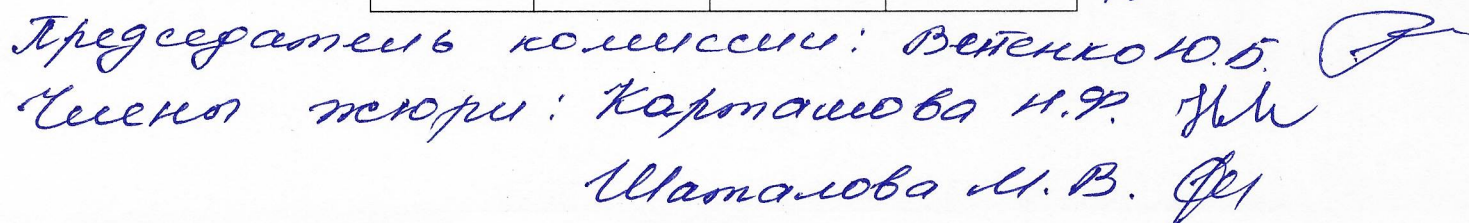 Председатель комиссии: Ветенко Ю.Б.
Члены жюри: Карташова Н.Ф.
Шаталова М.В.